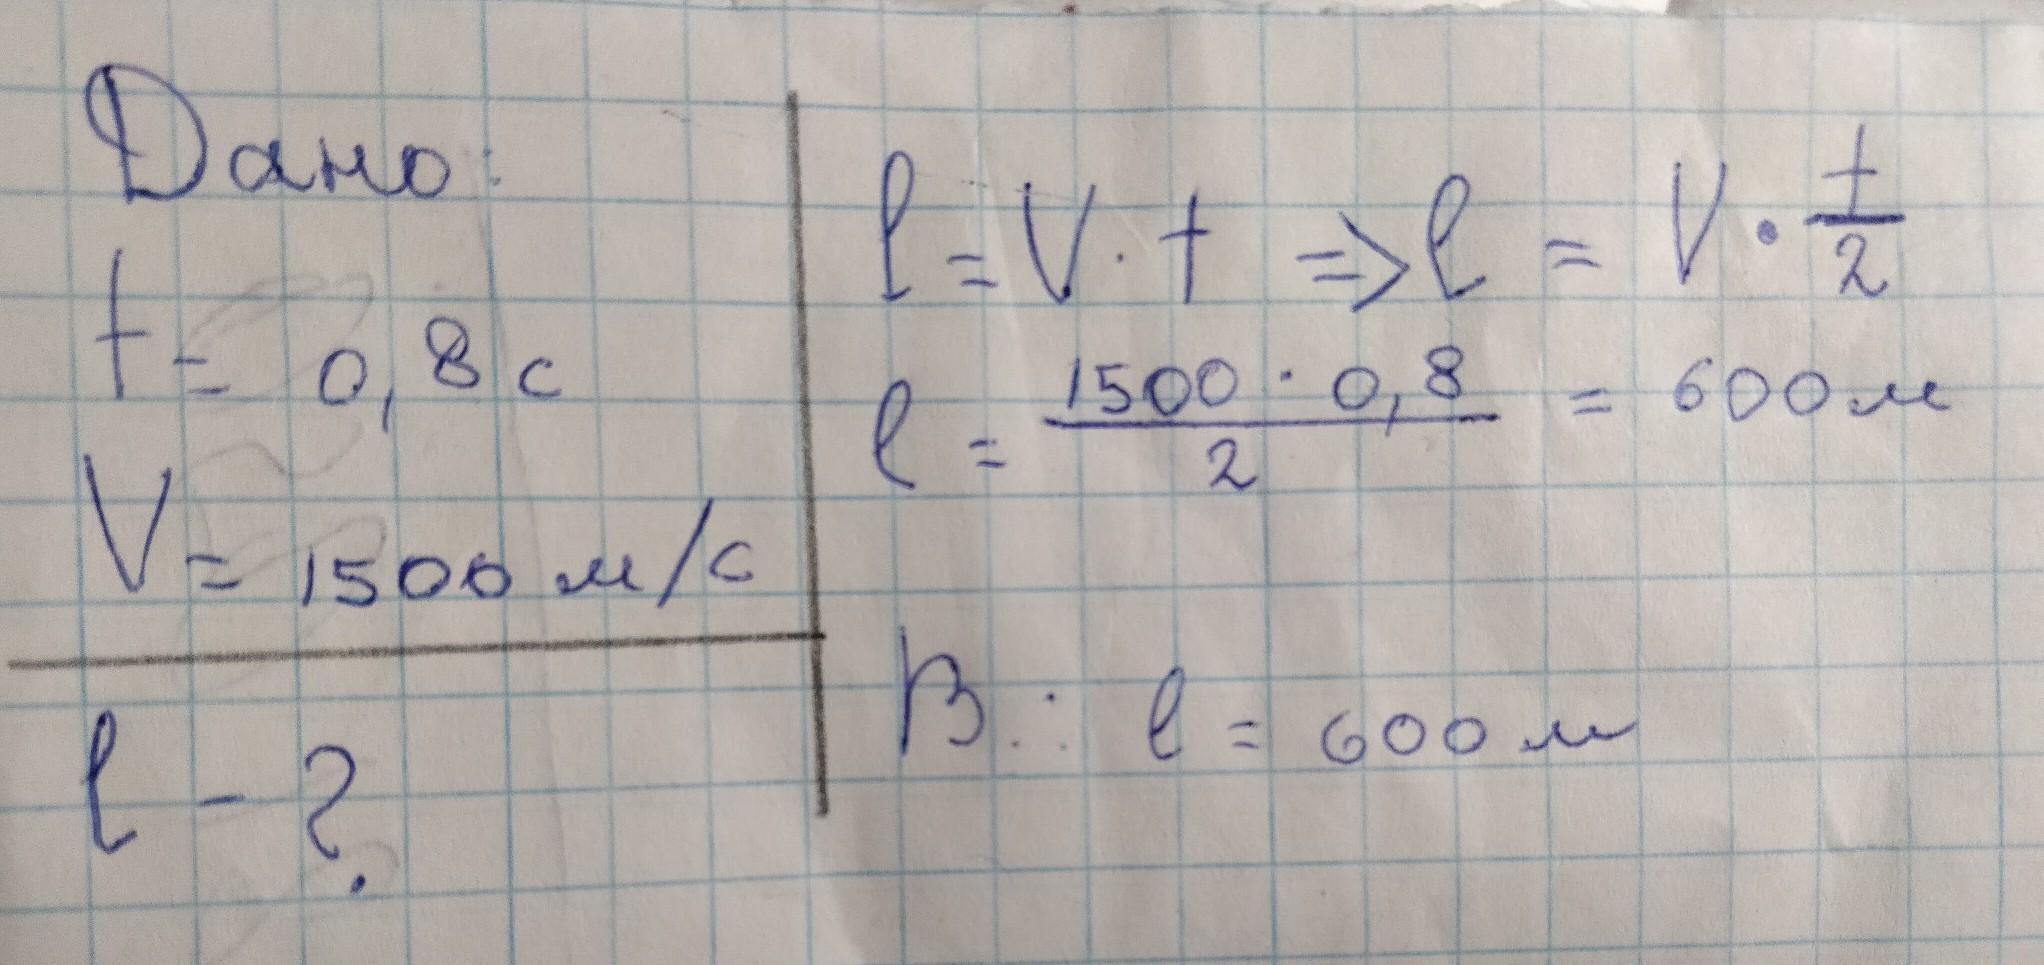 Дано:
t = 0,8 с
V = 1500 м/с
l - ?
l = V · t => l = V · t/2
l = 1500 · 0,8 / 2 = 600 м
В.: l = 600 м